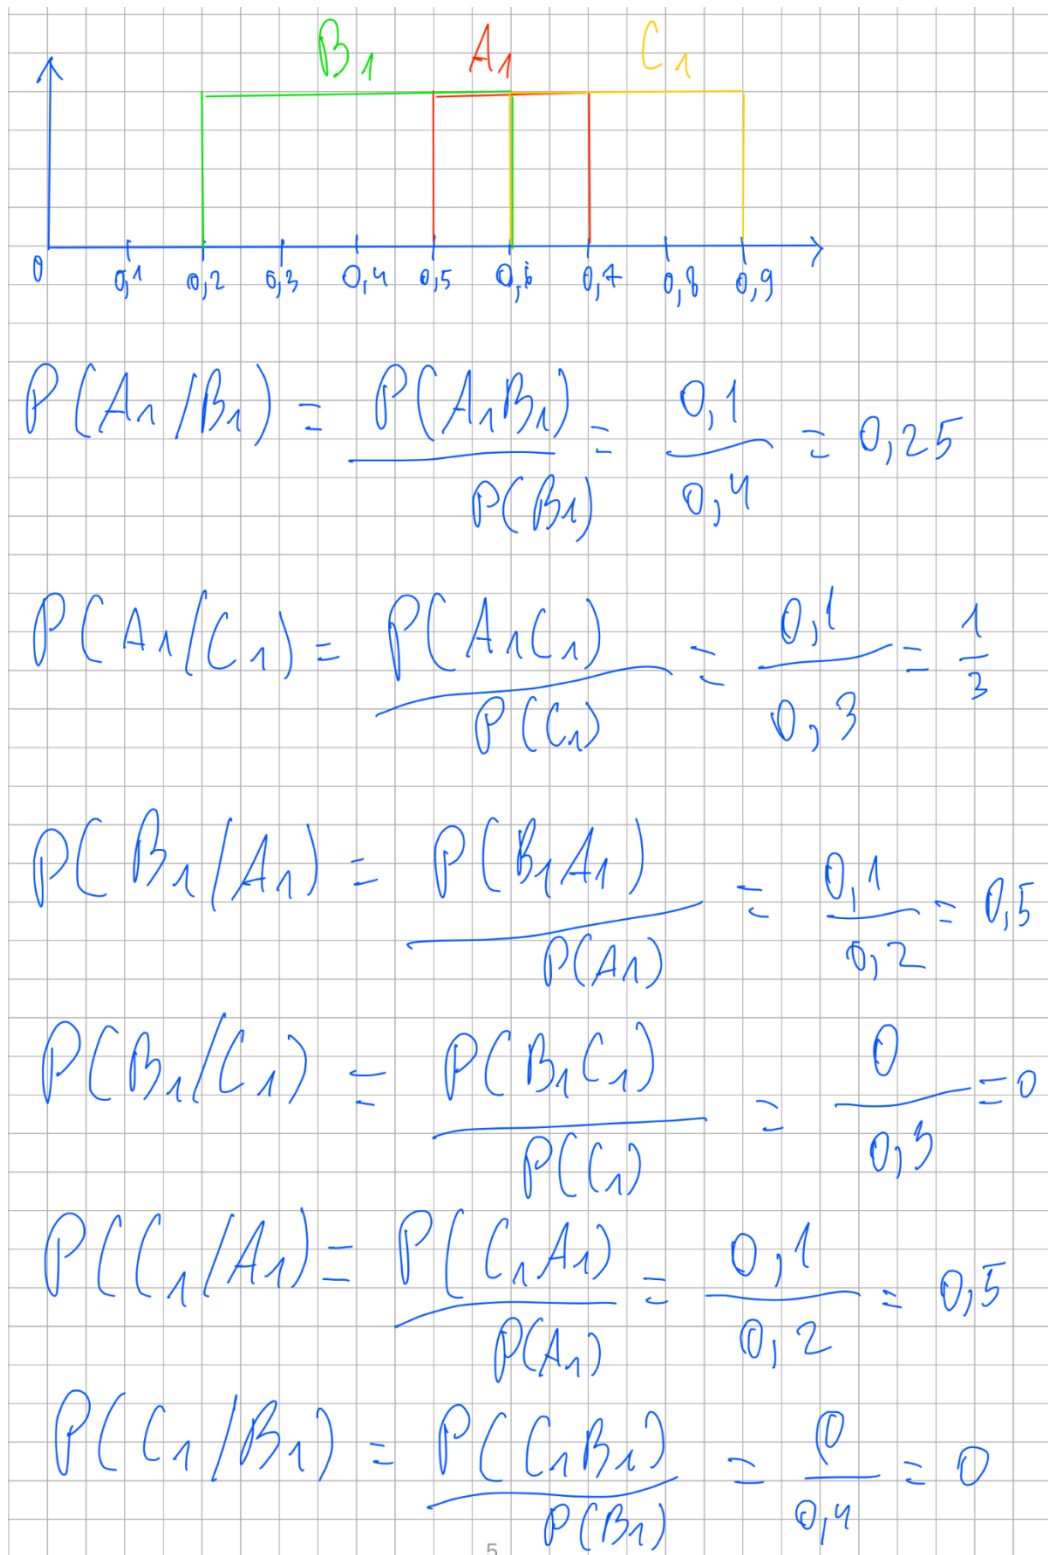 B1 A1 C1
0 0,1 0,2 0,3 0,4 0,5 0,6 0,7 0,8 0,9
P(A1/B1) = P(A1B1)/P(B1) = 0,1/0,4 = 0,25
P(A1/C1) = P(A1C1)/P(C1) = 0,1/0,3 = 1/3
P(B1/A1) = P(B1A1)/P(A1) = 0,1/0,2 = 0,5
P(B1/C1) = P(B1C1)/P(C1) = 0/0,3 = 0
P(C1/A1) = P(C1A1)/P(A1) = 0,1/0,2 = 0,5
P(C1/B1) = P(C1B1)/P(B1) = 0/0,4 = 0
5